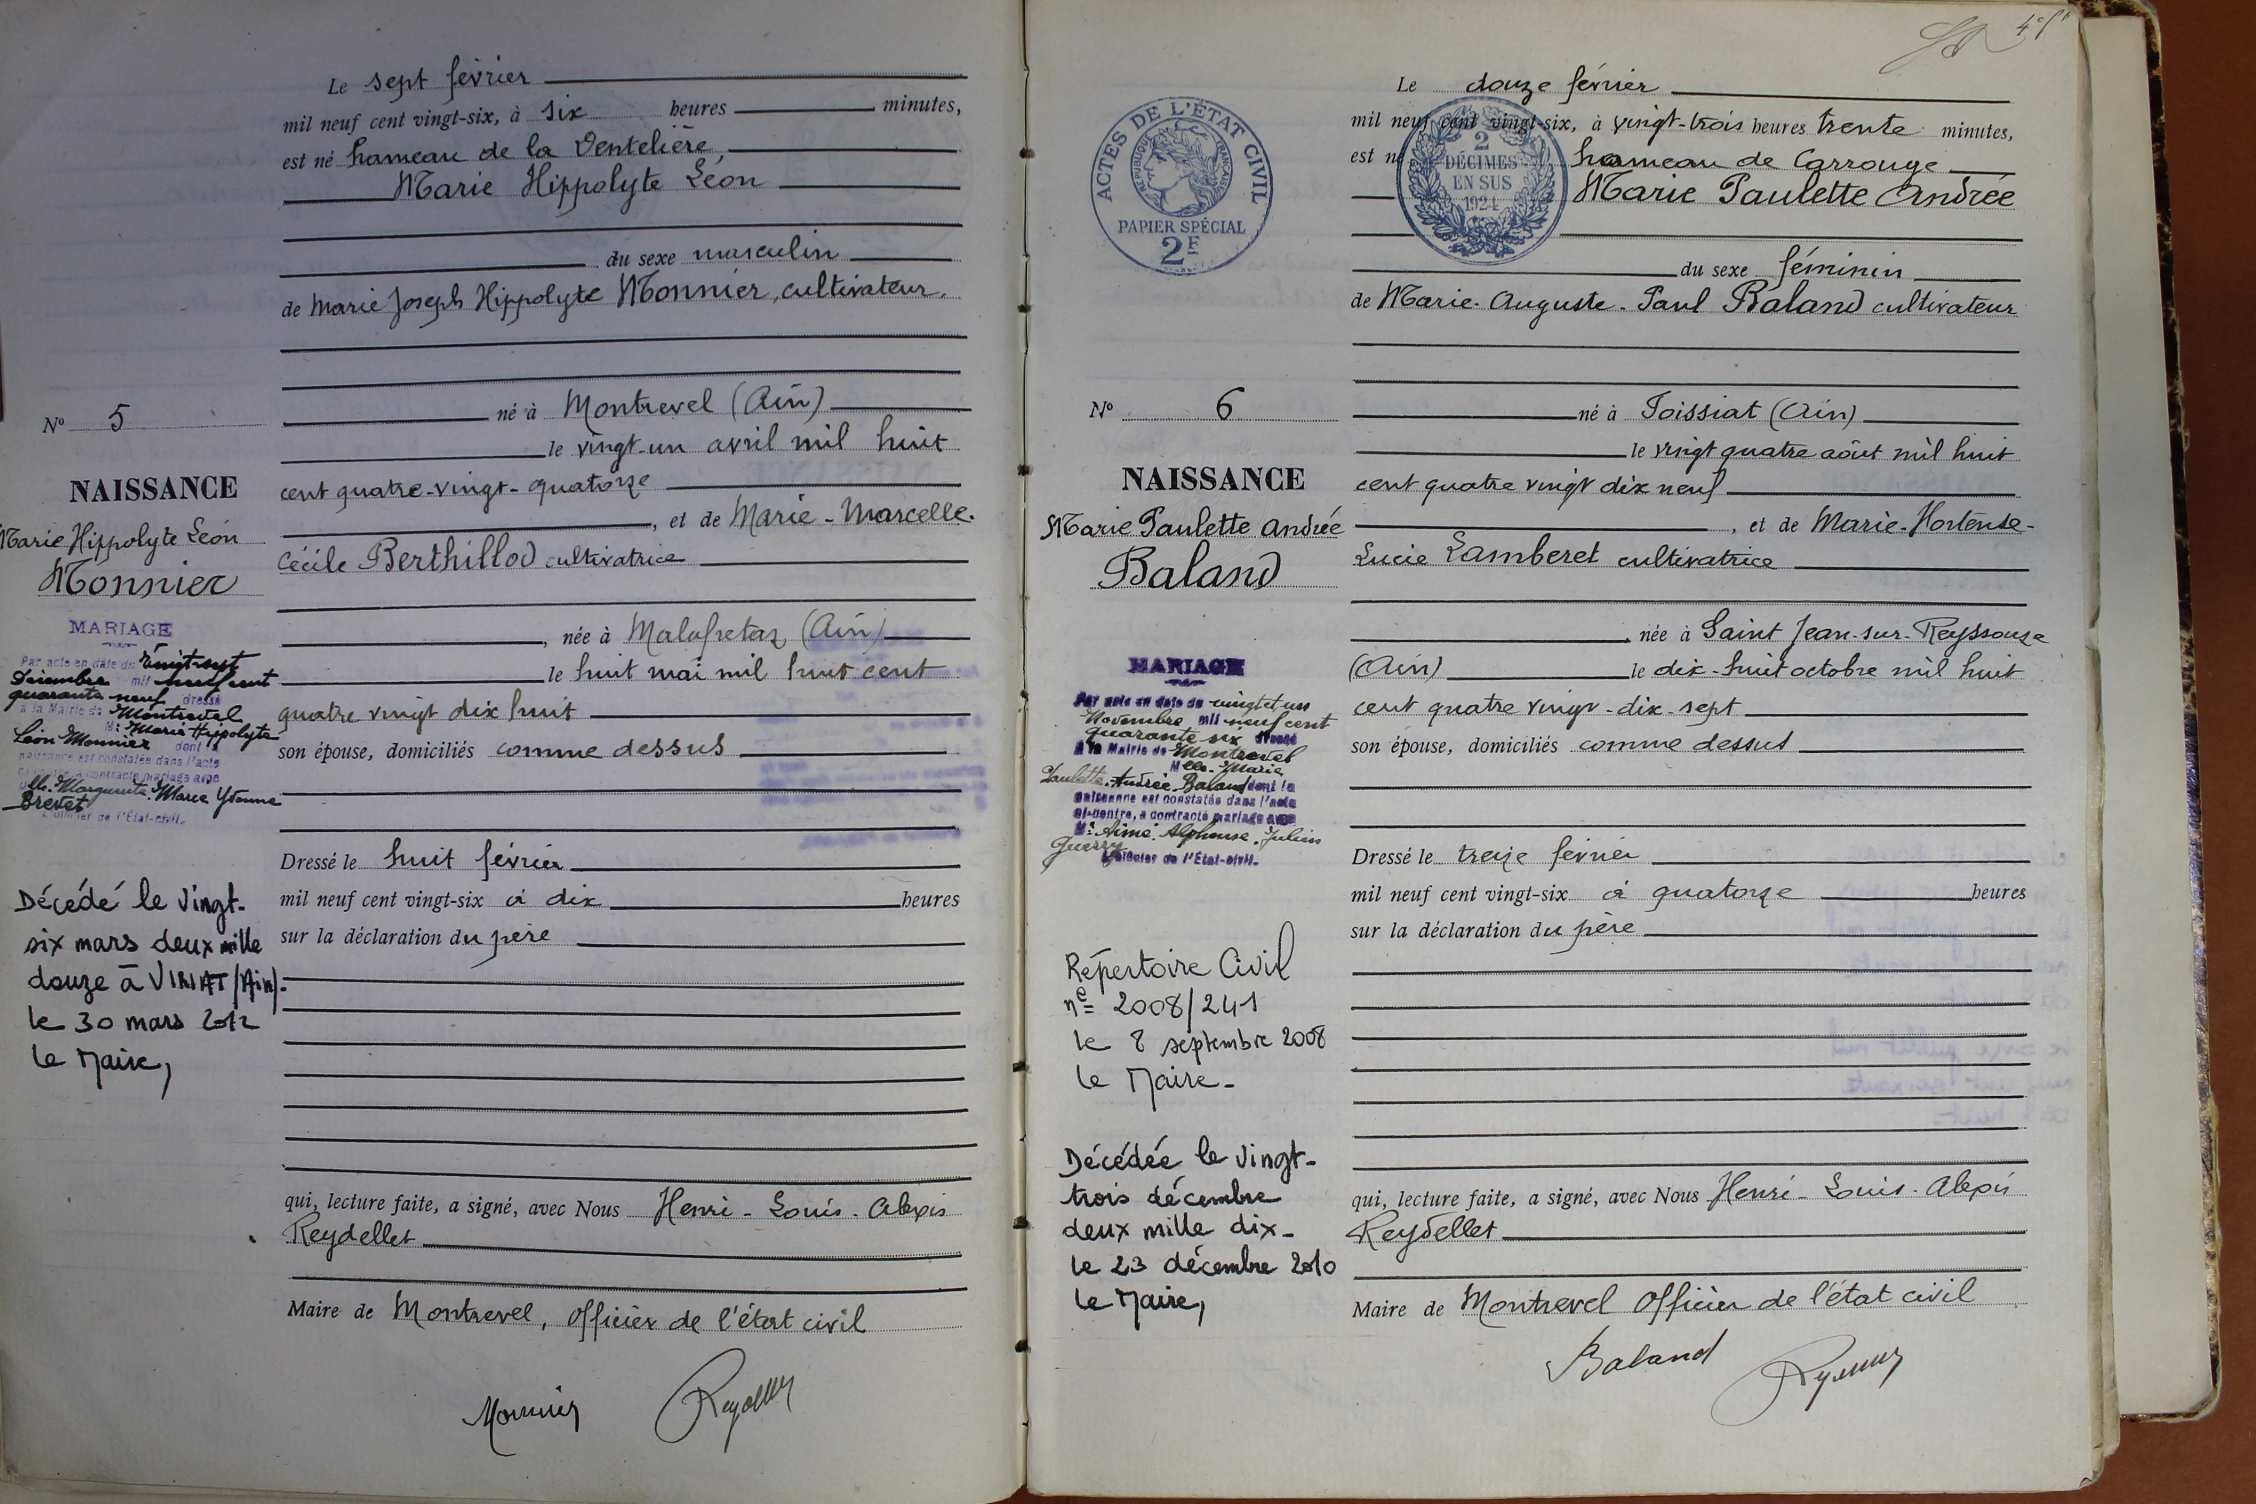 Le sept février
mil neuf cent vingt-six, à six heures minutes,
est né hameau de la Ventelière
Marie Hippolyte Léon
du sexe masculin
de Marie Joseph Hippolyte Monnier, cultivateur,
né à Montrevel (Ain)
le vingt-un avril mil huit
cent quatre-vingt-quatorze
, et de Marie-Marcelle-
Cécile Berthillod cultivatrice
, née à Malafretaz (Ain)
le huit mai mil huit cent
quatre vingt dix huit
son épouse, domiciliés comme dessus
Dressé le huit février
mil neuf cent vingt-six à dix heures
sur la déclaration du père
qui, lecture faite, a signé, avec Nous Henri-Louis-Alexis
Reydellet
Maire de Montrevel, officier de l'état civil
Monnier
N° 5
NAISSANCE
Marie Hippolyte Léon
Monnier
MARIAGE
Par acte en date du Vingt-sept
Décembre mil neuf cent
quarante neuf dressé
à la Mairie de Montrevel
Mr Marie Hippolyte
Léon Monnier dont la
naissance est constatée dans l'acte
a contracté mariage avec
Mlle Marguerite Marie Yvonne
Brevet
L'Officier de l'État-civil.
Décédé le vingt-
six mars deux mille
douze à VIRIAT (Ain).
le 30 mars 2012
le Maire,
4
Le douze février
mil neuf cent vingt-six, à vingt-trois heures trente minutes,
est né hameau de Carrouge
Marie Paulette Andrée
du sexe féminin
de Marie-Auguste-Paul Baland cultivateur
né à Foissiat (Ain)
le vingt quatre août mil huit
cent quatre vingt dix neuf
, et de Marie-Hortense-
Lucie Lamberet cultivatrice
, née à Saint Jean-sur-Reyssouze
(Ain) le dix-huit octobre mil huit
cent quatre vingt-dix-sept
son épouse, domiciliés comme dessus
Dressé le treize février
mil neuf cent vingt-six à quatorze heures
sur la déclaration du père
qui, lecture faite, a signé, avec Nous Henri-Louis-Alexis
Reydellet
Maire de Montrevel officier de l'état civil
Baland
ACTES DE L'ÉTAT CIVIL
RÉPUBLIQUE FRANÇAISE
PAPIER SPÉCIAL
2F
2
DÉCIMES
EN SUS
1924
N° 6
NAISSANCE
Marie Paulette Andrée
Baland
MARIAGE
Par acte en date du vingt et un
Novembre mil neuf cent
quarante six dressé
à la Mairie de Montrevel
Mlle Marie
Paulette Andrée Baland dont la
naissance est constatée dans l'acte
ci-contre, a contracté mariage avec
Mr Aimé Alphonse Julien
Guerry
L'Officier de l'État-civil.
Répertoire Civil
n° 2008/241
le 8 septembre 2008
le Maire-
Décédée le vingt-
trois décembre
deux mille dix-
le 23 décembre 2010
le Maire,